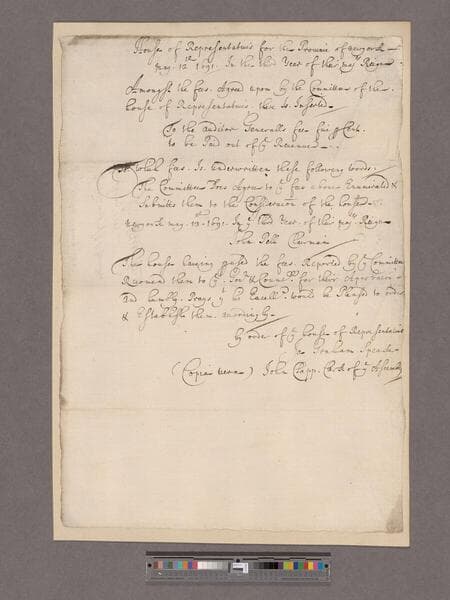 House of Representatives for the Province of newyork
may. 12th 1691. In the third Year of their maj. Reign
Amongst the fees Agreed upon by the Committee of the
house of Representatives. there Is. Inserted
To the Auditor Generalls fee five p Cent.
to be Paid out of ye Revenue
To which fees. Is. underwritten these following words.
The Committee Does Agree to ye fees above Enumerated &
Submitts them to the Consideracon of the house
newyork may. 13th 1691. In ye third Year of their majts Reign
John Pell Chairman
This house having perused the fees. Reported by ye Committee
Recomend them to ye Govr & Councill for their
and humbly Prays yt his Excelly would be Pleased to order
& Establish them accordingly.
by order of ye house of Representatives
Ja Graham Speaker
(Copia vera) John Clapp. Clerk of ye Assembly